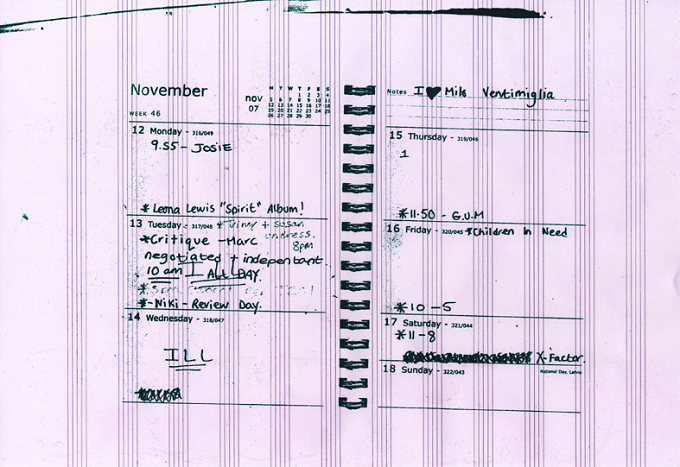 November
WEEK 46
nov
07
M T W T F S S
1 2 3 4
5 6 7 8 9 10 11
12 13 14 15 16 17 18
19 20 21 22 23 24 25
26 27 28 29 30
12 Monday - 316/049
9.55 - JOSIE
* Leona Lewis "Spirit" Album!
13 Tuesday - 317/048 * Trinny + Susan
undress.
*Critique - Marc 8pm
negotiated + independant.
10 am ALL DAY
*-Niki - Review Day.
14 Wednesday - 318/047
ILL
Notes I ♥ Milo Ventimiglia
15 Thursday - 319/046
1
*11-50 - G.U.M
16 Friday - 320/045 *Children In Need
*10 - 5
17 Saturday - 321/044
*11-8
X-Factor.
18 Sunday - 322/043
National Day, Latvia